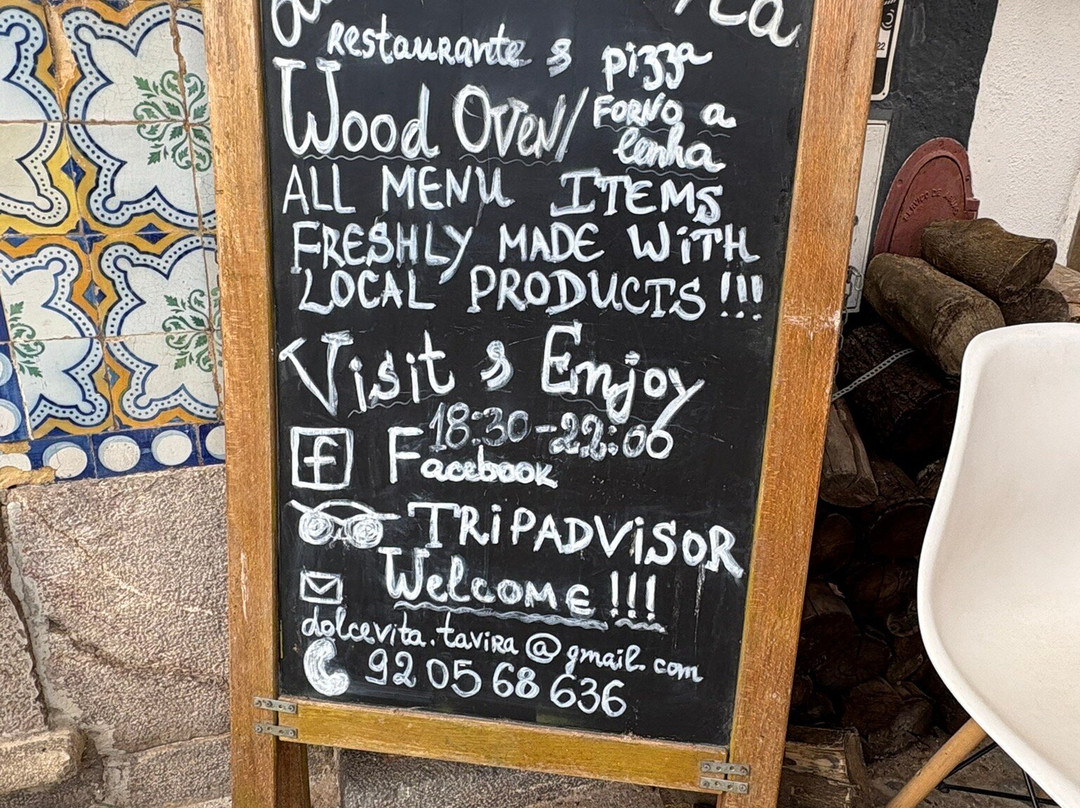 restaurante & pizza
Wood Oven/ FORNO a
lenha
ALL MENU ITEMS
FRESHLY MADE WiTH
LOCAL PRODUCTS !!!
Visit & Enjoy
18:30-22:00
f Facebook
TRiPADViSOR
Welcome !!!
dolcevita.tavira@gmail.com
92 05 68 636
22